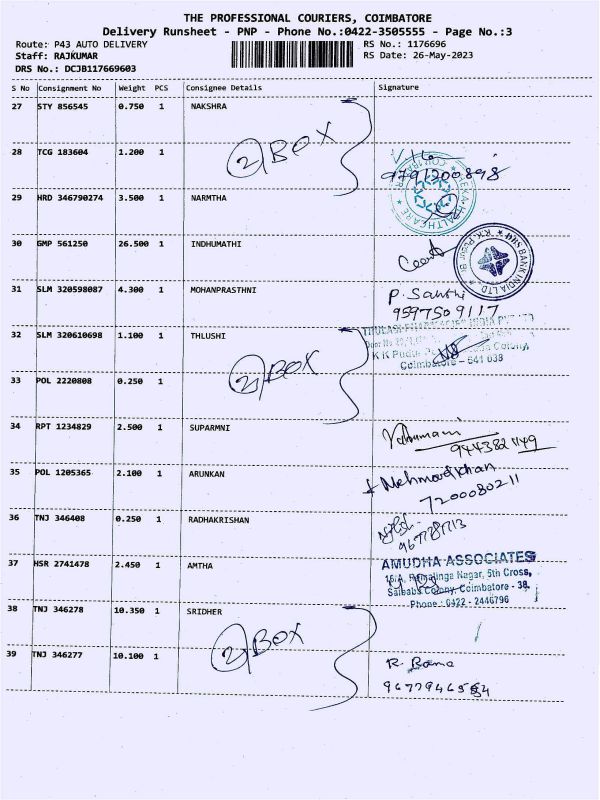 THE PROFESSIONAL COURIERS, COIMBATORE
Delivery Runsheet - PNP - Phone No.:0422-3505555 - Page No.:3
Route: P43 AUTO DELIVERY RS No.: 1176696
Staff: RAJKUMAR RS Date: 26-May-2023
DRS No.: DCJB117669603
S No Consignment No Weight PCS Consignee Details Signature
27 STY 856545 0.750 1 NAKSHRA
2 BOX
28 TCG 183604 1.200 1
9791200898
29 HRD 346790274 3.500 1 NARMTHA
30 GMP 561250 26.500 1 INDHUMATHI
BANK INDIA LTD
31 SLM 320598087 4.300 1 MOHANPRASTHNI
P. Sakthi
9597509117
32 SLM 320610698 1.100 1 THLUSHI
2 BOX
K K Pudur
Colony,
Coimbatore - 641 038
33 POL 2220808 0.250 1
34 RPT 1234829 2.500 1 SUPARMNI
9443821149
35 POL 1205365 2.100 1 ARUNKAN
Mehmood Khan
7200080211
36 TNJ 346408 0.250 1 RADHAKRISHAN
37 HSR 2741478 2.450 1 AMTHA
AMUDHA ASSOCIATES
16/A, Ramalinga Nagar, 5th Cross,
Saibaba Colony, Coimbatore - 38.
Phone : 0422 - 2446796
38 TNJ 346278 10.350 1 SRIDHER
2 BOX
39 TNJ 346277 10.100 1
R. Bama